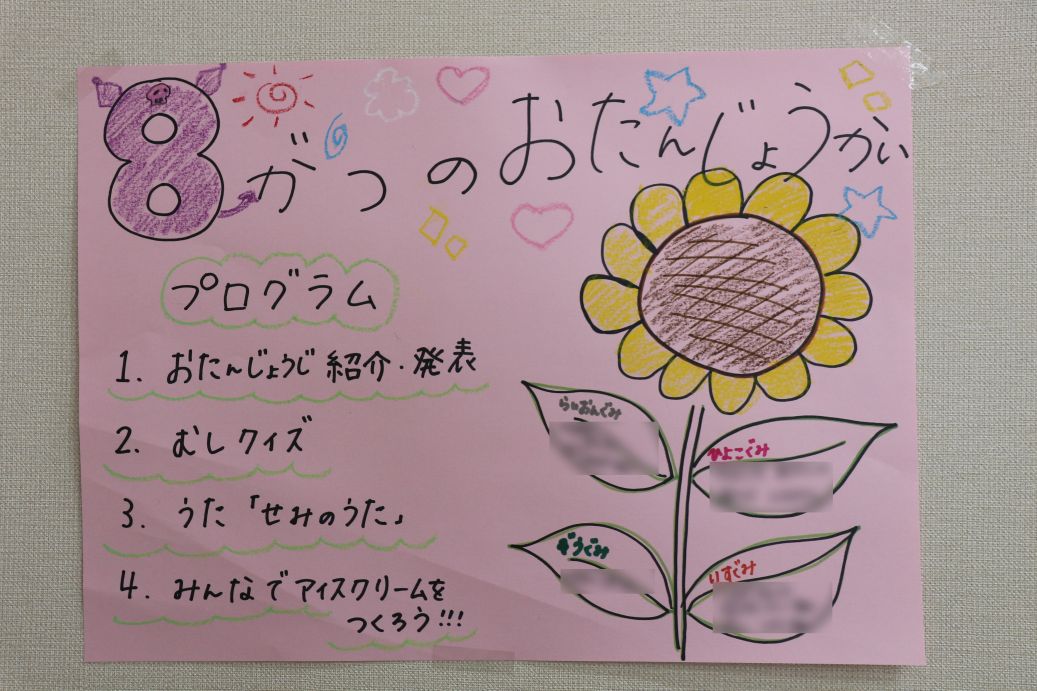 8がつのおたんじょうかい
プログラム
1. おたんじょうじ紹介・発表
2. むしクイズ
3. うた「せみのうた」
4. みんなでアイスクリームを
つくろう!!!
らいおんぐみ
ひよこぐみ
ぞうぐみ
りすぐみ